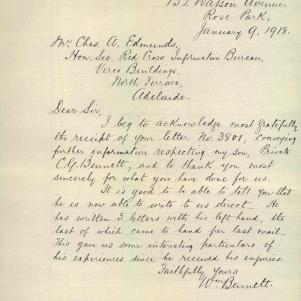 152 Watson Avenue,
Rose Park,
January 9, 1918.
Mr. Chas. A. Edmunds,
Hon. Sec. Red Cross Information Bureau,
Verco Buildings,
North Terrace,
Adelaide.
Dear Sir,
I beg to acknowledge most gratefully
the receipt of your letter No. 3801, conveying
further information respecting my son, Private
C.G. Bennett, and to thank you most
sincerely for what you have done for us.
It is good to be able to tell you that
he is now able to write to us direct. He
has written 3 letters with his left hand, the
last of which came to hand per last mail.
This gave us some interesting particulars of
his experiences since he received his injuries.
Faithfully Yours
Wm. Bennett.